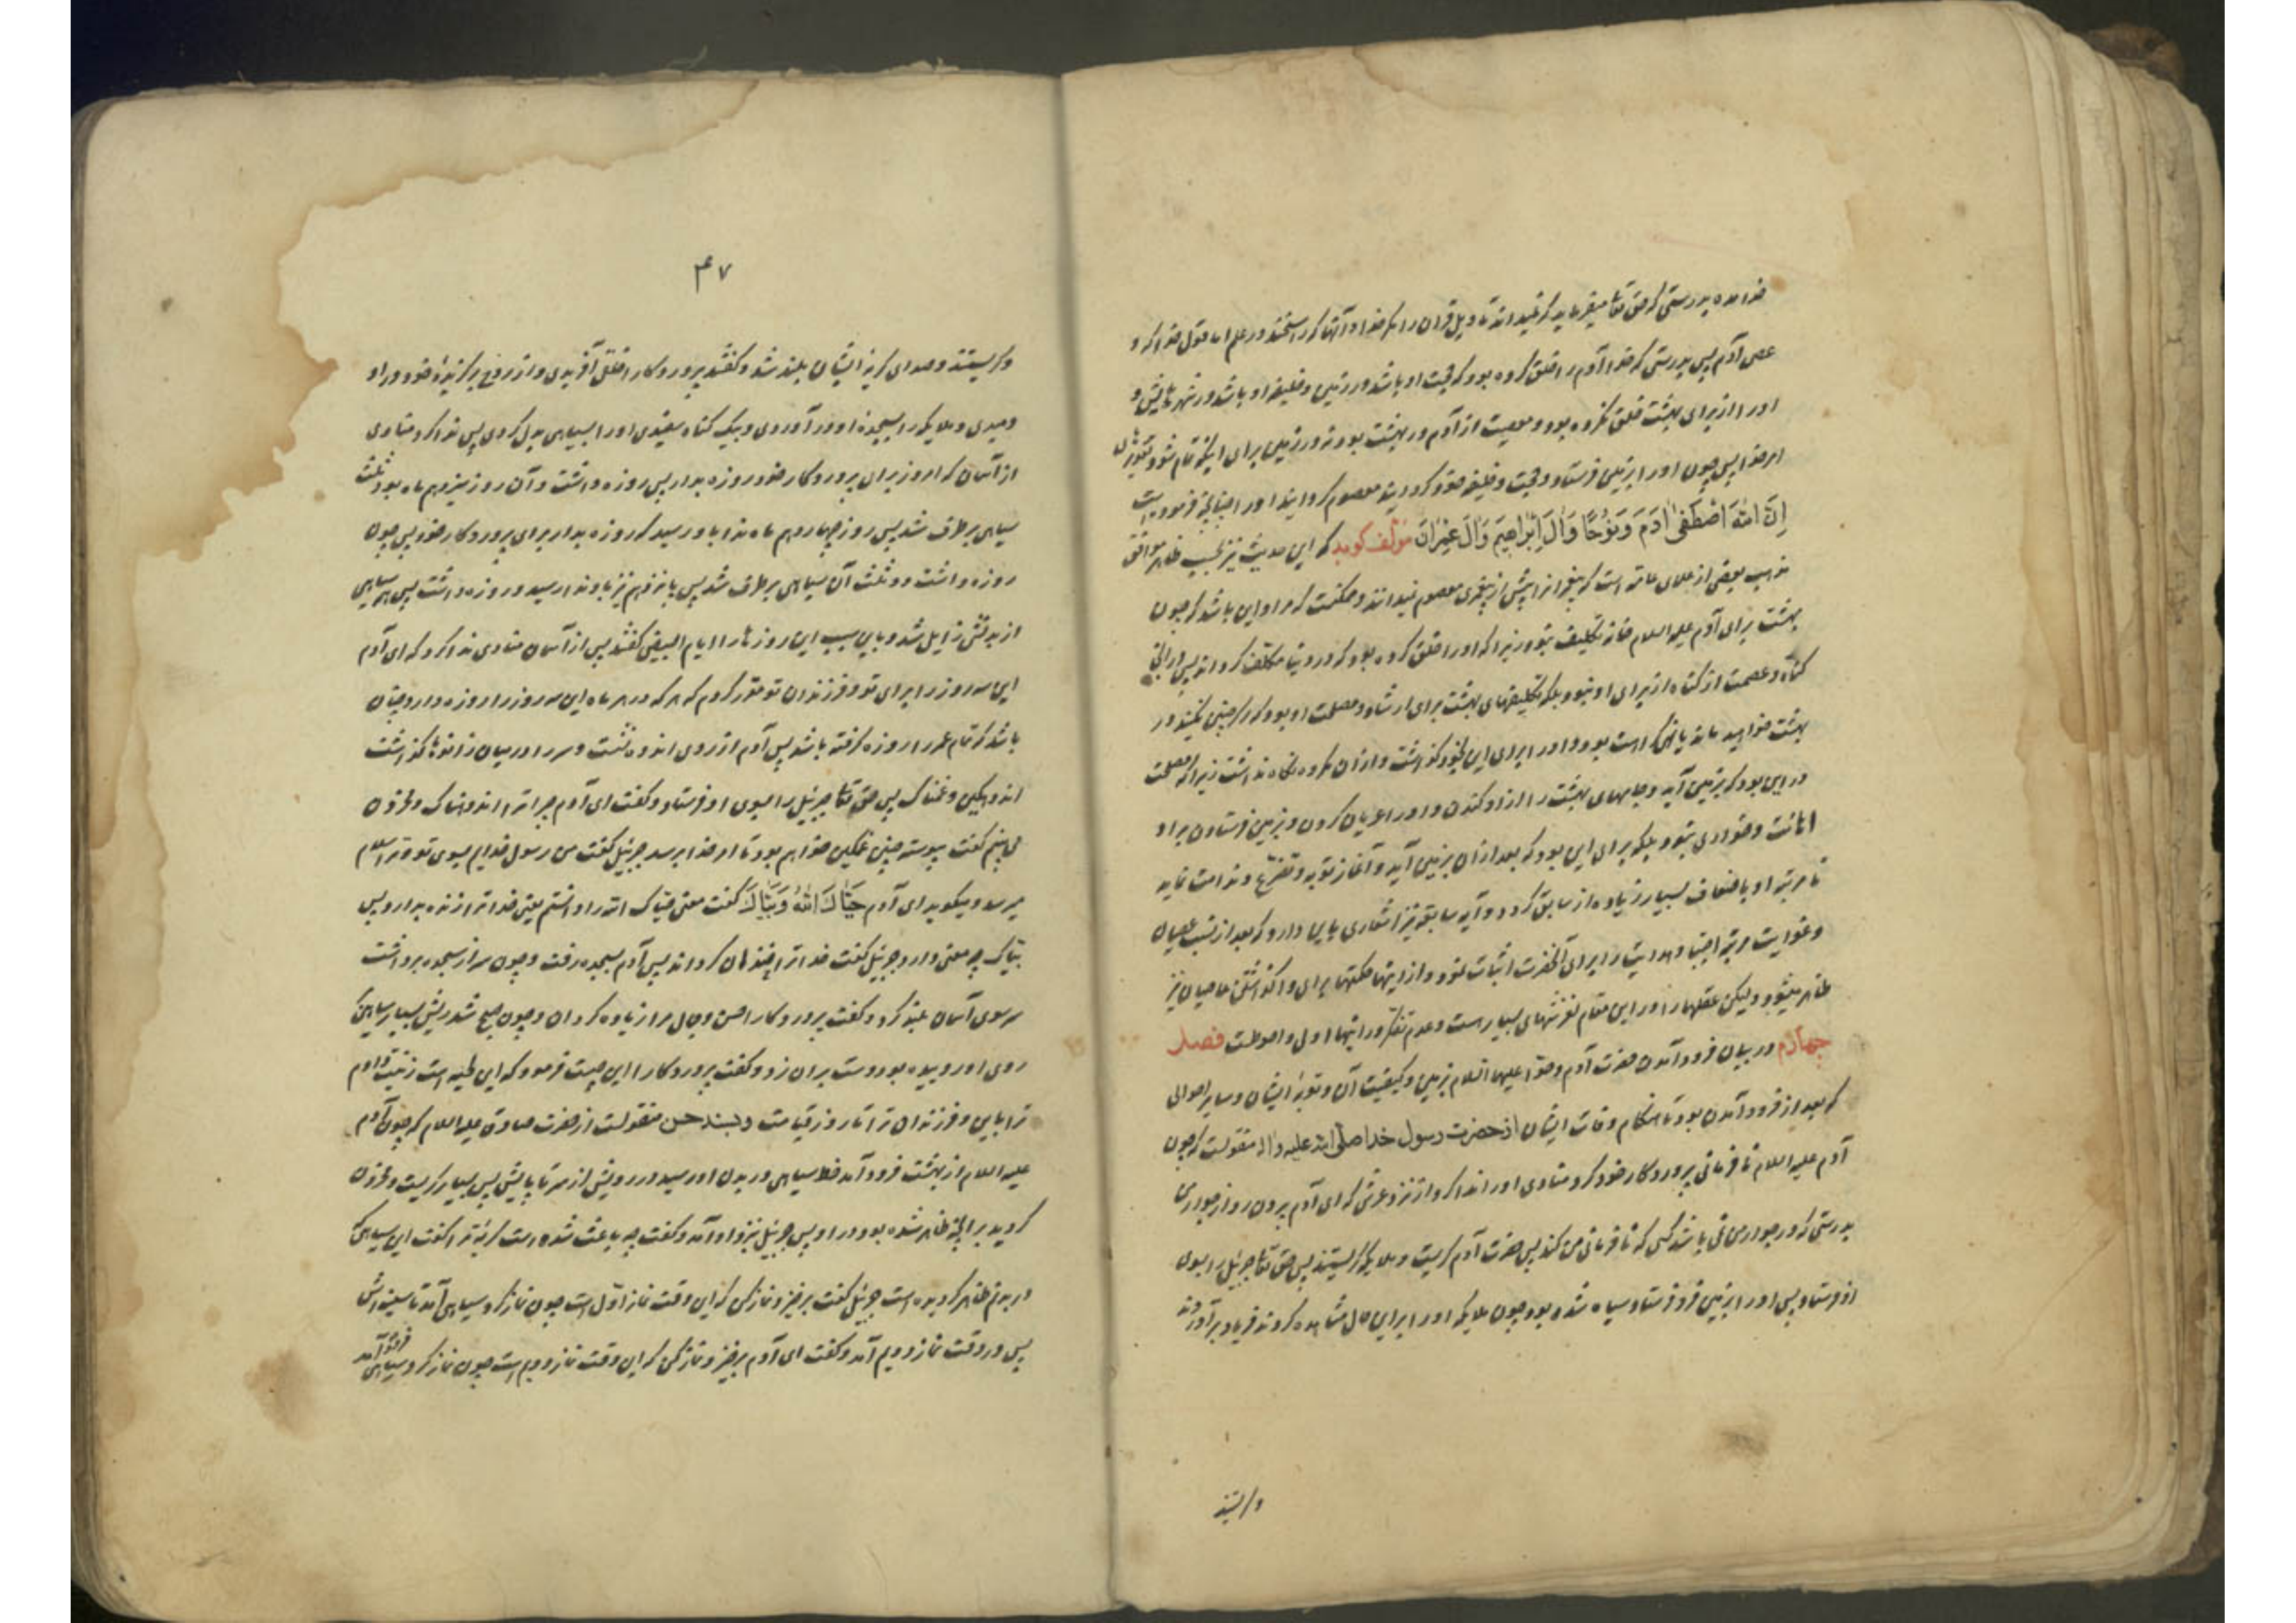 خدا مده بدرستی که حق تعالی میفرماید که نمیدانند تاویل قرآن را مگر خدا و آنها که راسخند در علم اما قول خدا که و
عصی آدم پس بدرستی که خدا آدم را خلق کرده بود که حجت او باشد در زمین و خلیفه او باشد در شهرهایش و
او را از برای بهشت خلق نکرده بود و معصیت از آدم در بهشت بود نه در زمین برای اینکه تمام شود تقدیرهای
امر خدا پس چون او را بزمین فرستاد و حجت و خلیفه خود گردانید معصوم گردانید او را چنانچه فرموده است
اِنَّ اللهَ اصْطَفٰی اٰدَمَ وَنُوْحًا وَاٰلَ اِبْرَاهِیْمَ وَاٰلَ عِمْرَانَ مؤلف گوید که این حدیث نیز بحسب ظاهر موافق
مذهب بعضی از علمای عامه است که پیغمبرانرا پیش از پیغمبری معصوم نمیدانند و ممکنست که مراد این باشد که چون
بهشت برای آدم علیه السلام خانه تکلیف نبود زیرا که او را خلق کرده بود که در دنیا مکلف گرداند پس در آنجا
گناه و عصمت از گناه از برای او نبود بلکه تکلیفهای بهشت برای ارشاد و مصلحت او بود که اگر چنین نکنید در
بهشت خواهید ماند یا نهی کراهت بود و او را برای این بخود گذاشت و از آن مکروه نگاه نداشت زیرا که مصلحت
در این بود که بزمین آید و جامهای بهشت را از او کندن و او را عریان کردن و بزمین فرستادن برای
اهانت و خواری نبود بلکه برای این بود که بعد از آن بزمین آید و آغاز توبه و تضرع و ندامت نماید
تا مرتبه او باضعاف بسیار زیاده از سابق گردد و آیه سابقه نیز اشعاری باین دارد که بعد از نسبت عصیان
و غوایت مرتبه اجتبا و هدایت را برای آنحضرت اثبات نمود و از اینها حکمتها برای واگذاشتن عاصیان نیز
ظاهر میشود و لیکن عقلها را در این مقام لغزشهای بسیار است و عدم تفکر در اینها اولی و احوطست فصل
چهارم در بیان فرود آمدن حضرت آدم و حوّا علیهما السلام بزمین و کیفیت آن و توبه ایشان و سایر احوالی
که بعد از فرود آمدن بود تا هنگام وفات ایشان از حضرت رسول خدا صلی الله علیه و اله منقولست که چون
آدم علیه السلام نافرمانی پروردگار خود کرد منادی او را ندا کرد از نزد عرش که ای آدم بیرون رو از جوار من
بدرستی که در جوار من نمی باشد کسی که نافرمانی من کند پس حضرت آدم گریست و ملائکه گریستند پس حق تعالی جبرئیل را بسوی
او فرستاد پس او را بزمین فرو فرستاد سیاه شده بود چون ملائکه او را براین حال مشاهده کردند فریاد برآوردند
و گریستند
۴۷
و گریستند و صدای گریه ایشان بلند شد و گفتند پروردگارا خلقی آفریدی و از روح برگزیده خود در او
دمیدی و ملائکه را بسجده او در آوردی و بیک گناه سفیدی او را بسیاهی بدل کردی پس ندا کرد منادی
از آسمان که امروز برای پروردگار خود روزه بدار پس روزه داشت و آن روز سیزدهم ماه بود ثلث
سیاهی برطرف شد پس روز چهاردهم ماه ندا باو رسید که روزه بدار برای پروردگار خود پس چون
روزه داشت دو ثلث آن سیاهی برطرف شد پس پانزدهم نیز باو ندا رسید و روزه داشت پس همه سیاهی
از بدنش زایل شد و باین سبب این روزها را ایام البیض گفتند پس از آسمان منادی ندا کرد که ای آدم
این سه روز را برای تو و فرزندان تو مقرر کردم که هر که در هر ماه این سه روز را روزه دارد چنان
باشد که تمام عمر را روزه گرفته باشد پس آدم از روی اندوه نشست و سر را در میان زانوها گذاشت
اندوهگین و غمناک پس حق تعالی جبرئیل را بسوی او فرستاد و گفت ای آدم چرا ترا اندوهناک و محزون
می بینم گفت پیوسته چنین غمگین خواهم بود تا امر خدا برسد جبرئیل گفت من رسول خدایم بسوی تو و ترا سلام
میرساند و میگوید ای آدم حَیَّاكَ اللهُ وَبَیَّاكَ گفت معنی حیاک الله را دانستم یعنی خدا ترا زنده بدارد پس
بیاک چه معنی دارد جبرئیل گفت خدا ترا خندان گرداند پس آدم بسجده رفت و چون سر از سجده برداشت
سر سوی آسمان بلند کرد و گفت پروردگارا حسن و جمال مرا زیاده گردان و چون صبح شد ریش بسیار سیاهی
روی او روییده بود دست بر آن زد و گفت پروردگارا این چیست فرمود که این لحیه است زینت دادم
ترا باین و فرزندان ترا تا روز قیامت و بسند حسن منقولست از حضرت صادق علیه السلام که چون آدم
علیه السلام از بهشت فرود آمد خط سیاهی در بدن او رسید در رویش از سر تا پایش پس بسیار گریست و محزون
گردید بر آنچه ظاهر شده بود در او پس جبرئیل بنزد او آمد و گفت چه باعث شده است گریه ترا گفت این سیاهی که
در بدنم ظاهر گردیده است جبرئیل گفت برخیز و نماز کن که این وقت نماز اول است چون نماز کرد سیاهی آمد تا سینه اش
پس در وقت نماز دویم آمد و گفت ای آدم برخیز و نماز کن که این وقت نماز دویم است چون نماز کرد سیاهی فرود آمد